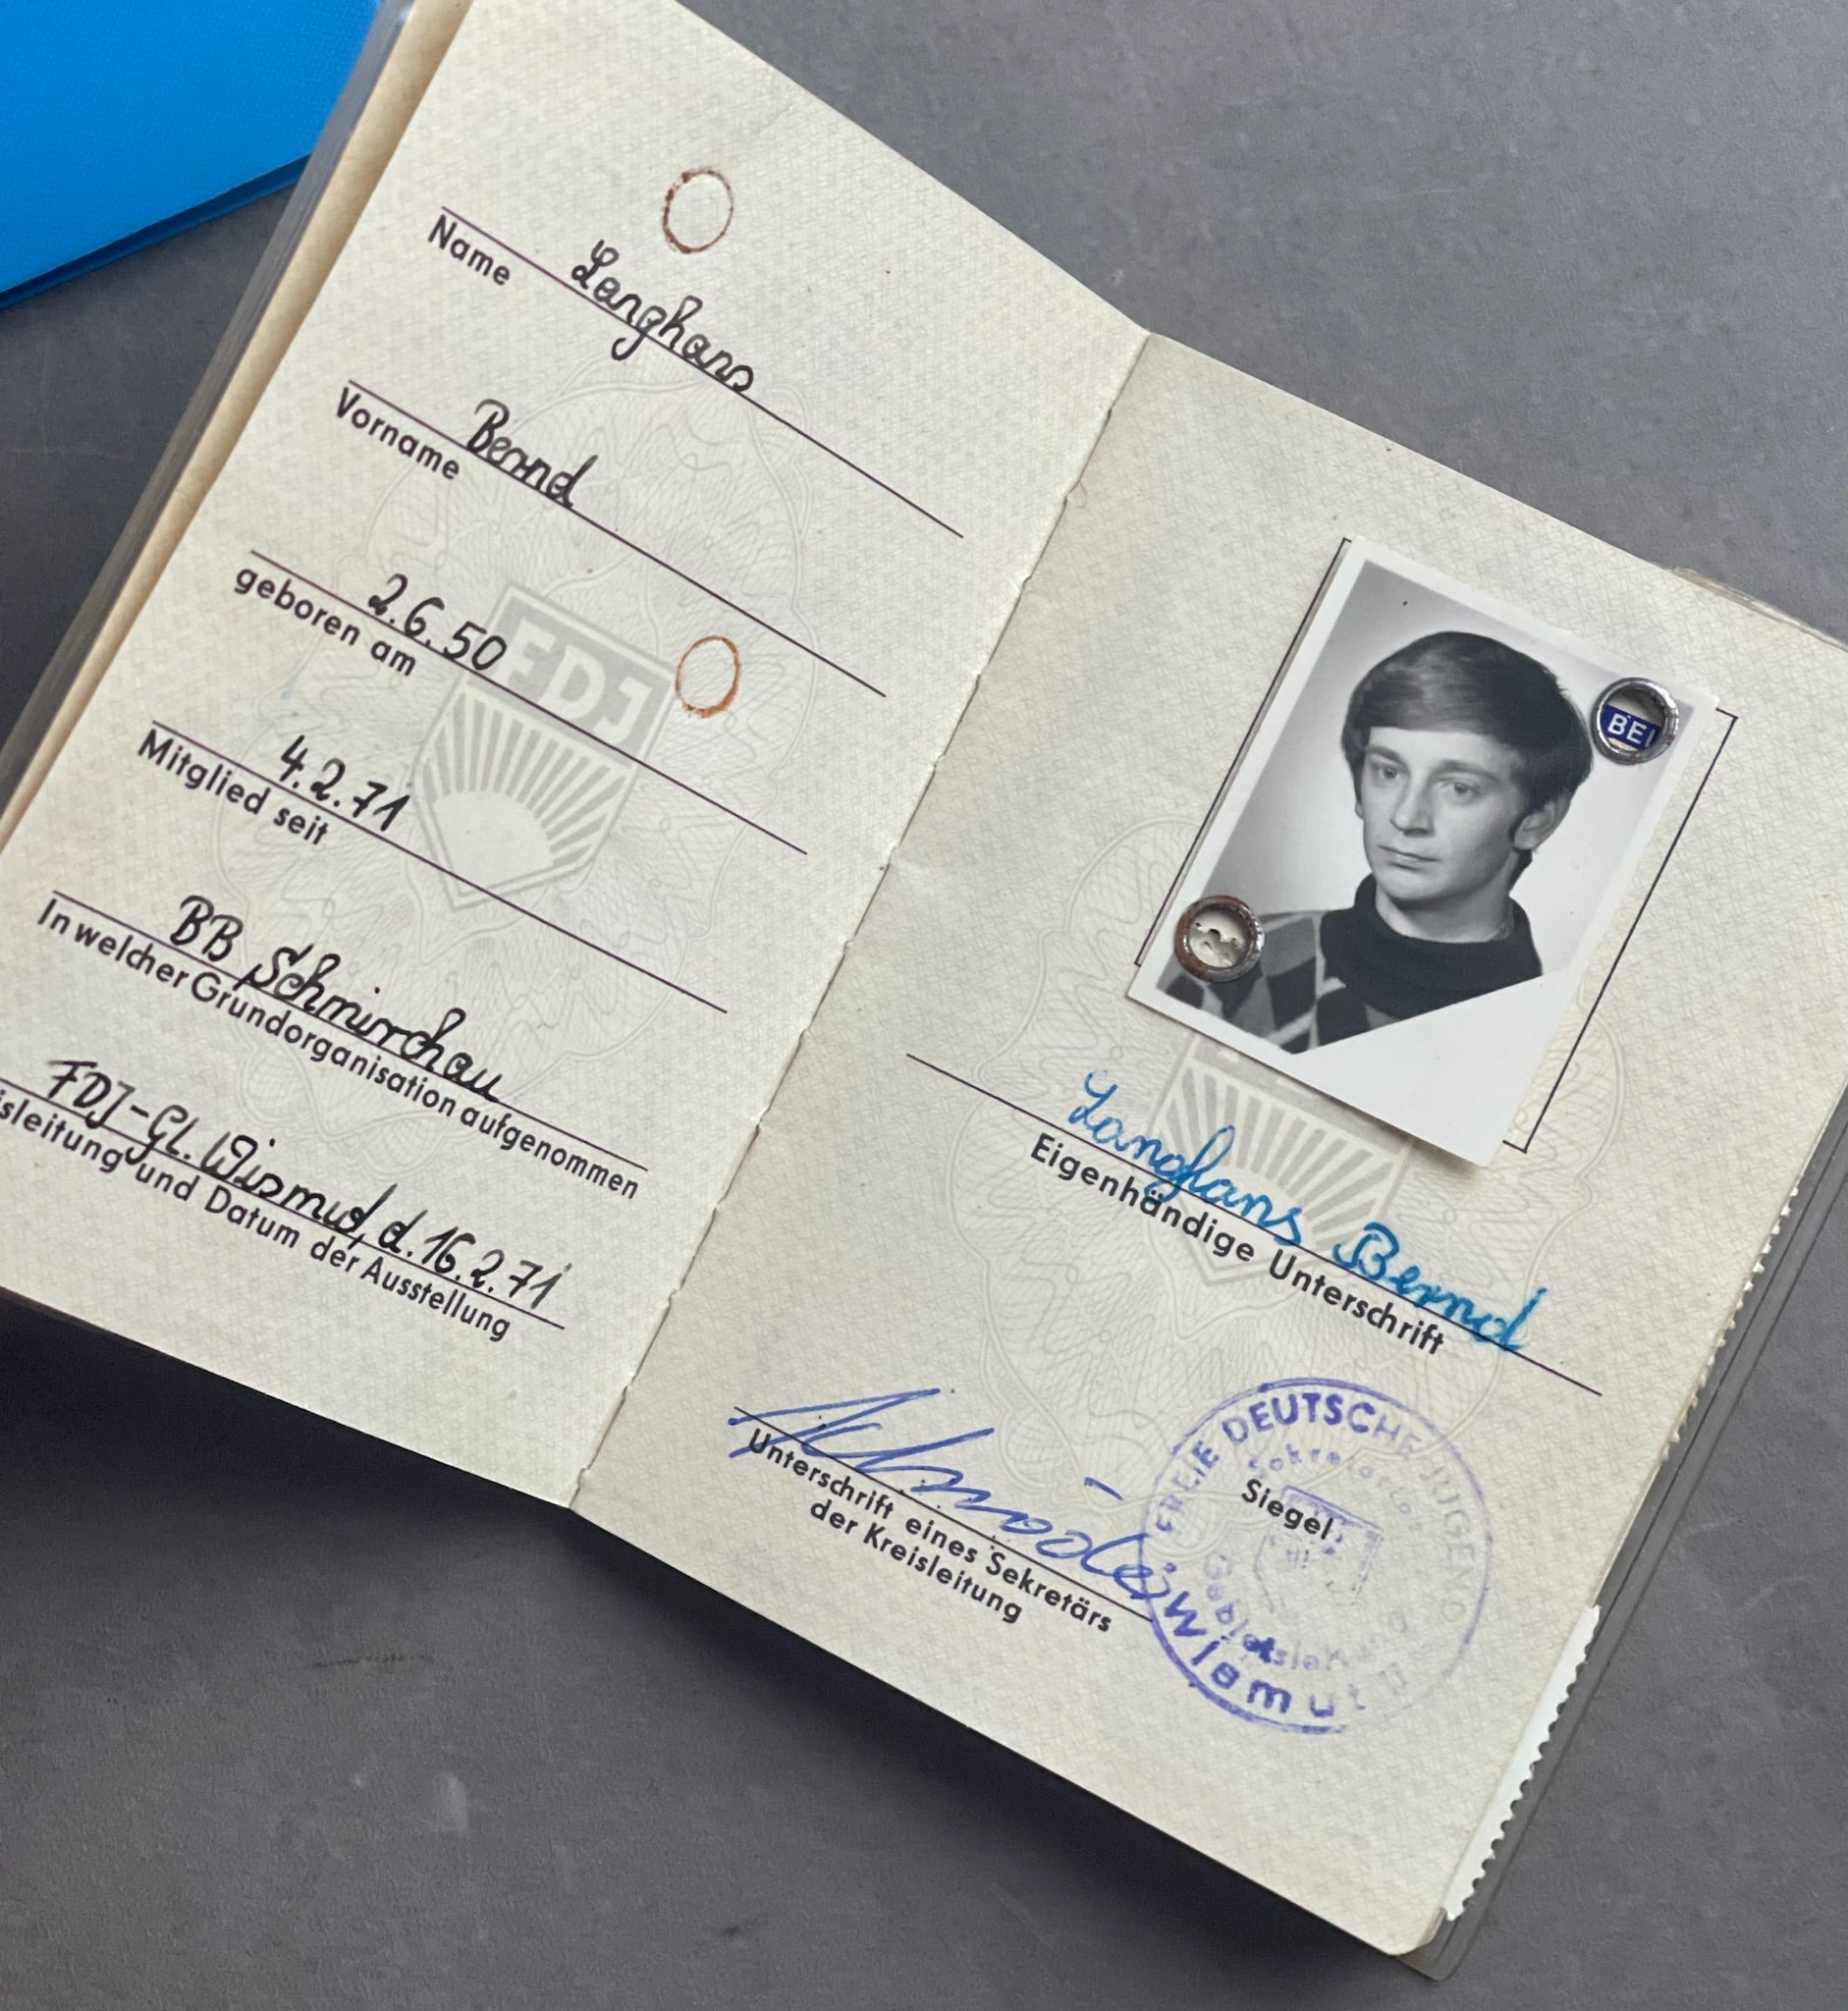 Langhans
Name
Bernd
Vorname
2.6.50
geboren am
4.2.71
Mitglied seit
BB Schmirchau
In welcher Grundorganisation aufgenommen
FDJ-GL. Wismut, d. 16.2.71
isleitung und Datum der Ausstellung
FDJ
BEI
Langhans Bernd
Eigenhändige Unterschrift
Unterschrift eines Sekretärs
der Kreisleitung
Siegel
FREIE DEUTSCHE JUGEND
Sekretariat
Gebietsleitung
Wismut